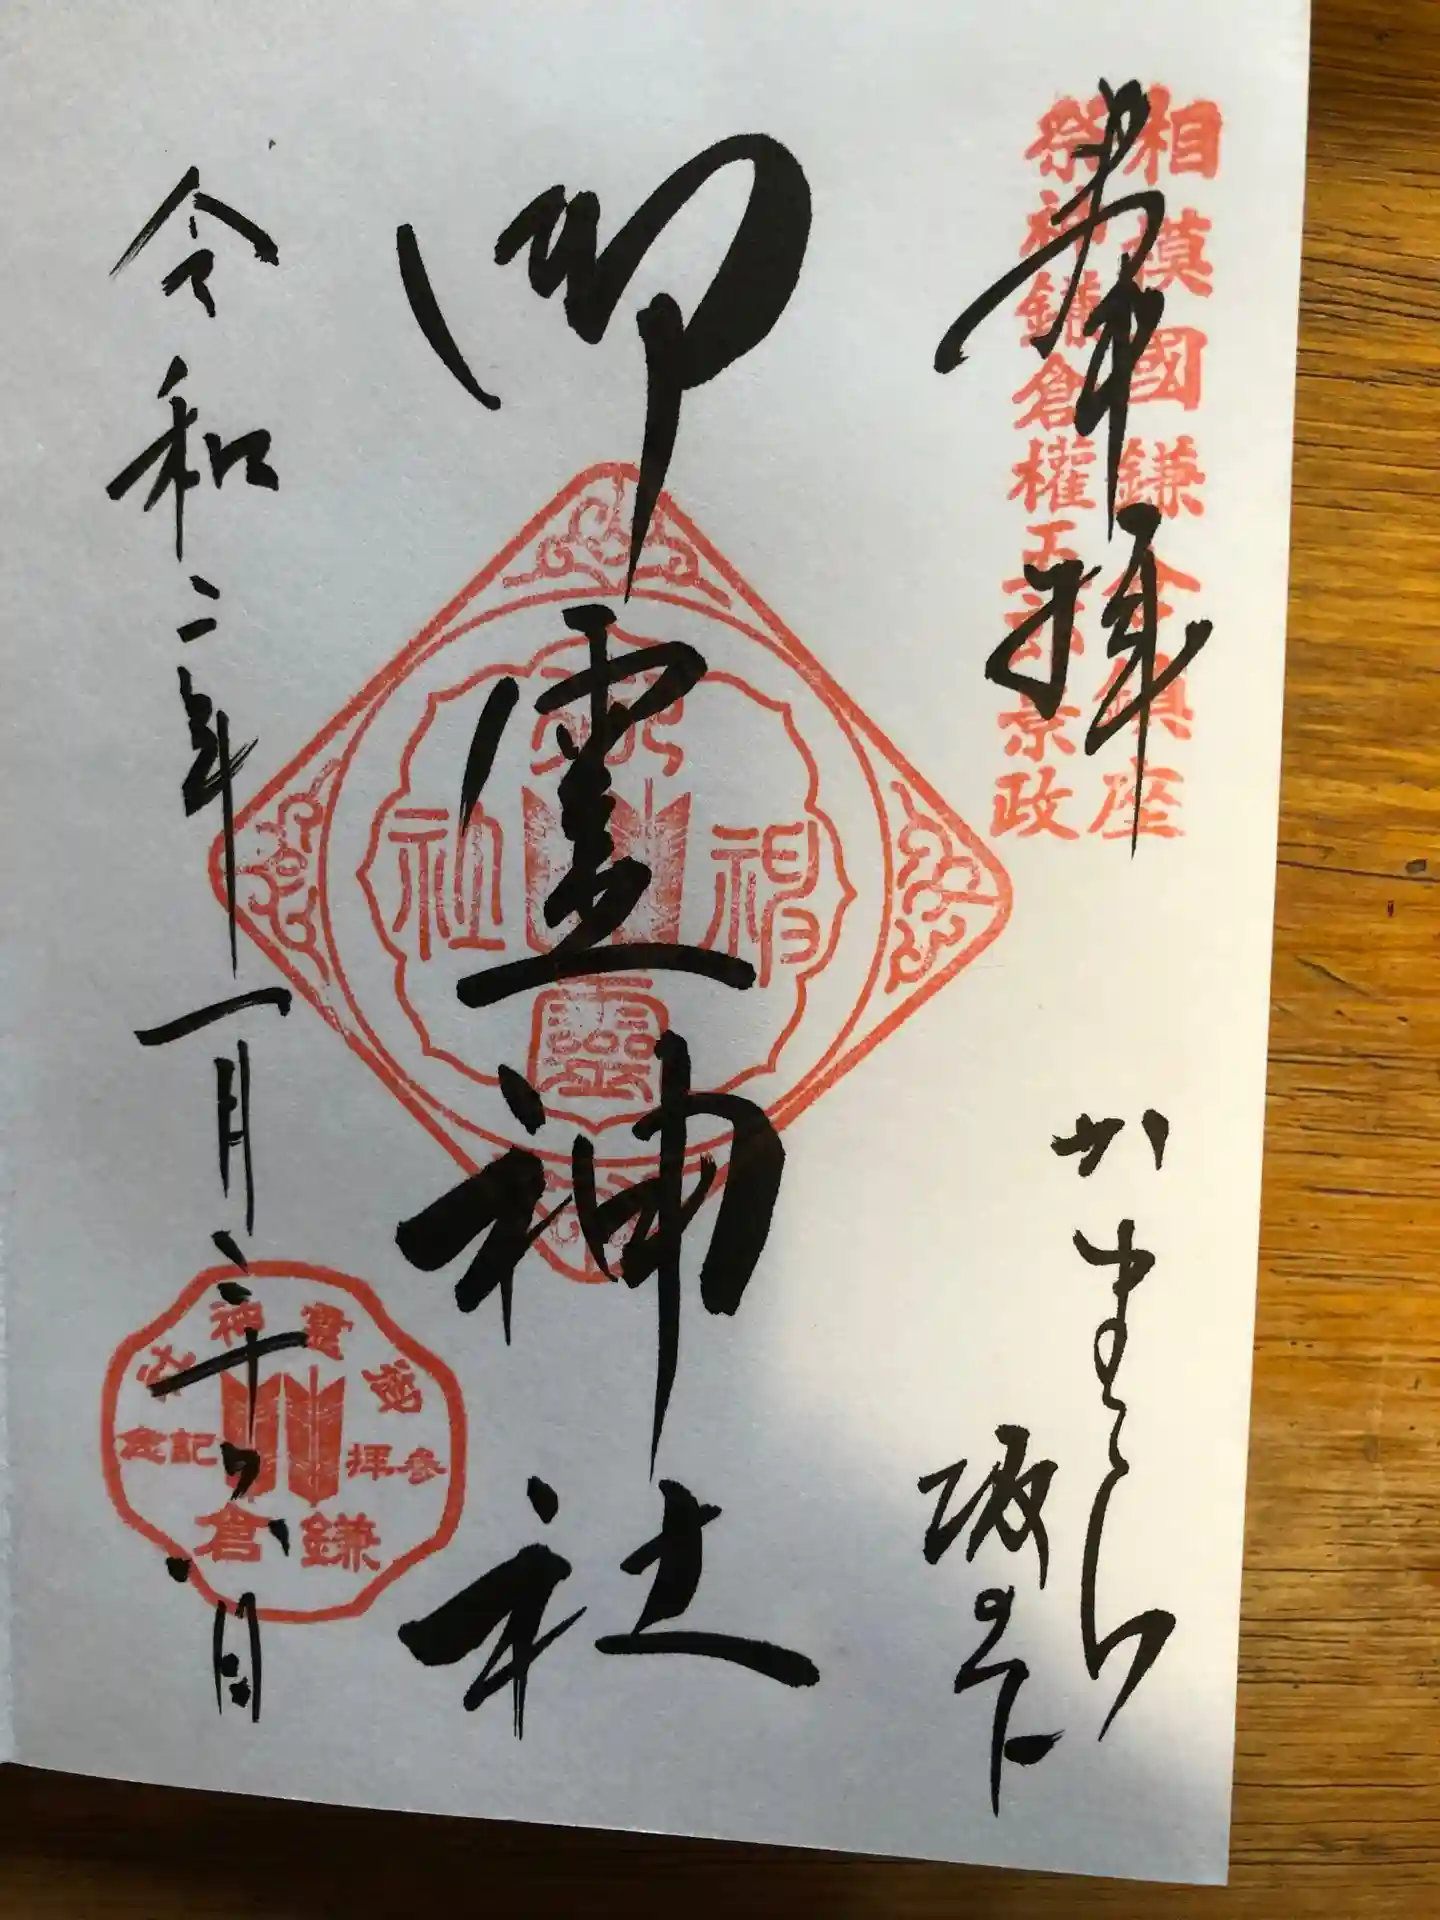 相模國鎌倉鎮座
祭神鎌倉權五郎景政
奉拝
かまくら
坂の下
御霊神社
御
神
社
靈
令和二年一月二十六日
御靈神社
参拝記念
鎌倉